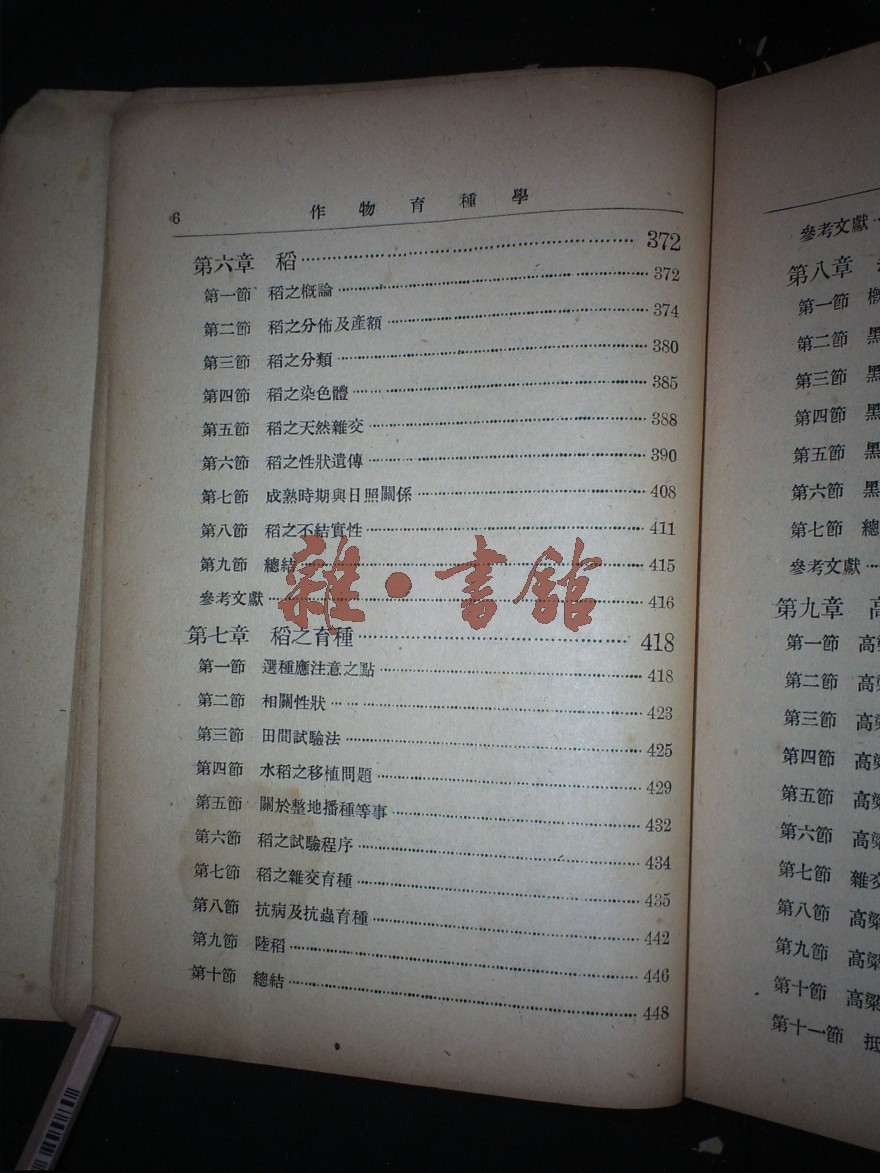 6 作物育種學
第六章 稻 372
第一節 稻之概論 372
第二節 稻之分佈及產額 374
第三節 稻之分類 380
第四節 稻之染色體 385
第五節 稻之天然雜交 388
第六節 稻之性狀遺傳 390
第七節 成熟時期與日照關係 408
第八節 稻之不結實性 411
第九節 總結 415
參考文獻 416
第七章 稻之育種 418
第一節 選種應注意之點 418
第二節 相關性狀 423
第三節 田間試驗法 425
第四節 水稻之移植問題 429
第五節 關於整地播種等事 432
第六節 稻之試驗程序 434
第七節 稻之雜交育種 435
第八節 抗病及抗蟲育種 442
第九節 陸稻 446
第十節 總結 448
雜·書館
參考文獻
第八章
第一節 概
第二節 黑
第三節 黑
第四節 黑
第五節 黑
第六節 黑
第七節 總
參考文獻
第九章 高
第一節 高粱
第二節 高粱
第三節 高粱
第四節 高粱
第五節 高粱
第六節 高粱
第七節 雜交
第八節 高粱
第九節 高粱
第十節 高粱
第十一節 抵